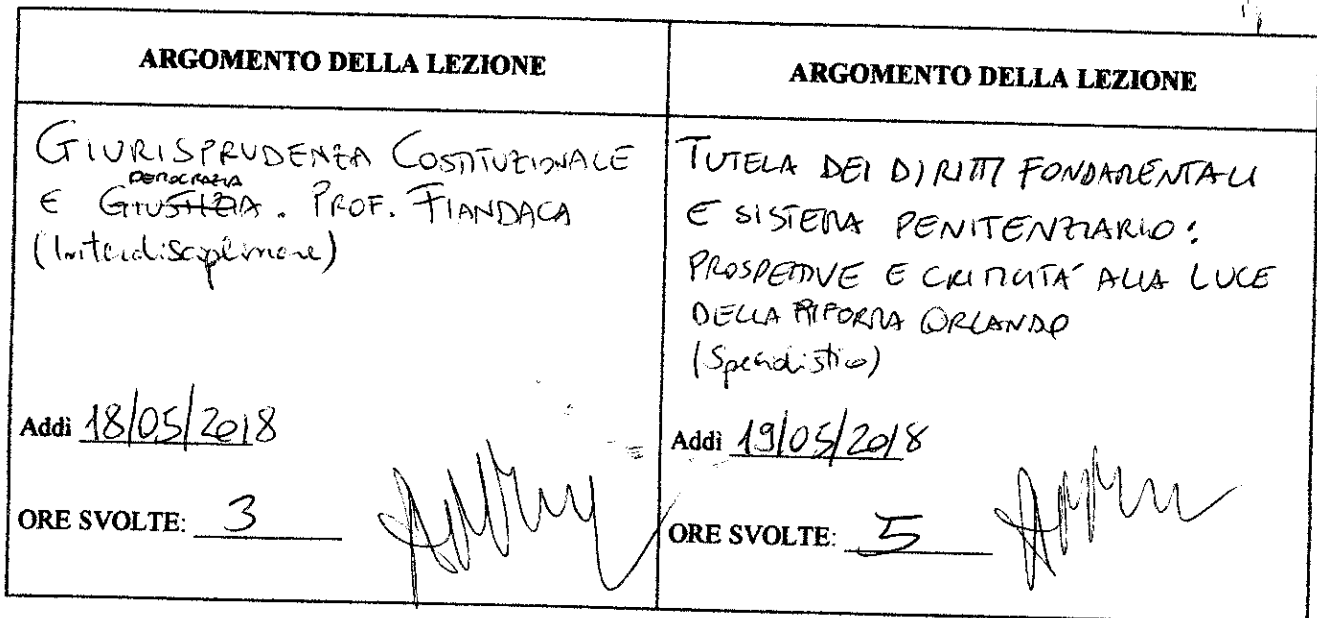 ARGOMENTO DELLA LEZIONE
GIURISPRUDENZA COSTITUZIONALE
DEMOCRAZIA
E GIUSTIZIA. PROF. FIANDACA
(Interdisciplinare)
Addì 18/05/2018
ORE SVOLTE: 3
ARGOMENTO DELLA LEZIONE
TUTELA DEI DIRITTI FONDAMENTALI
E SISTEMA PENITENZIARIO:
PROSPETTIVE E CRITICITÀ ALLA LUCE
DELLA RIFORMA ORLANDO
(Specialistico)
Addì 19/05/2018
ORE SVOLTE: 5